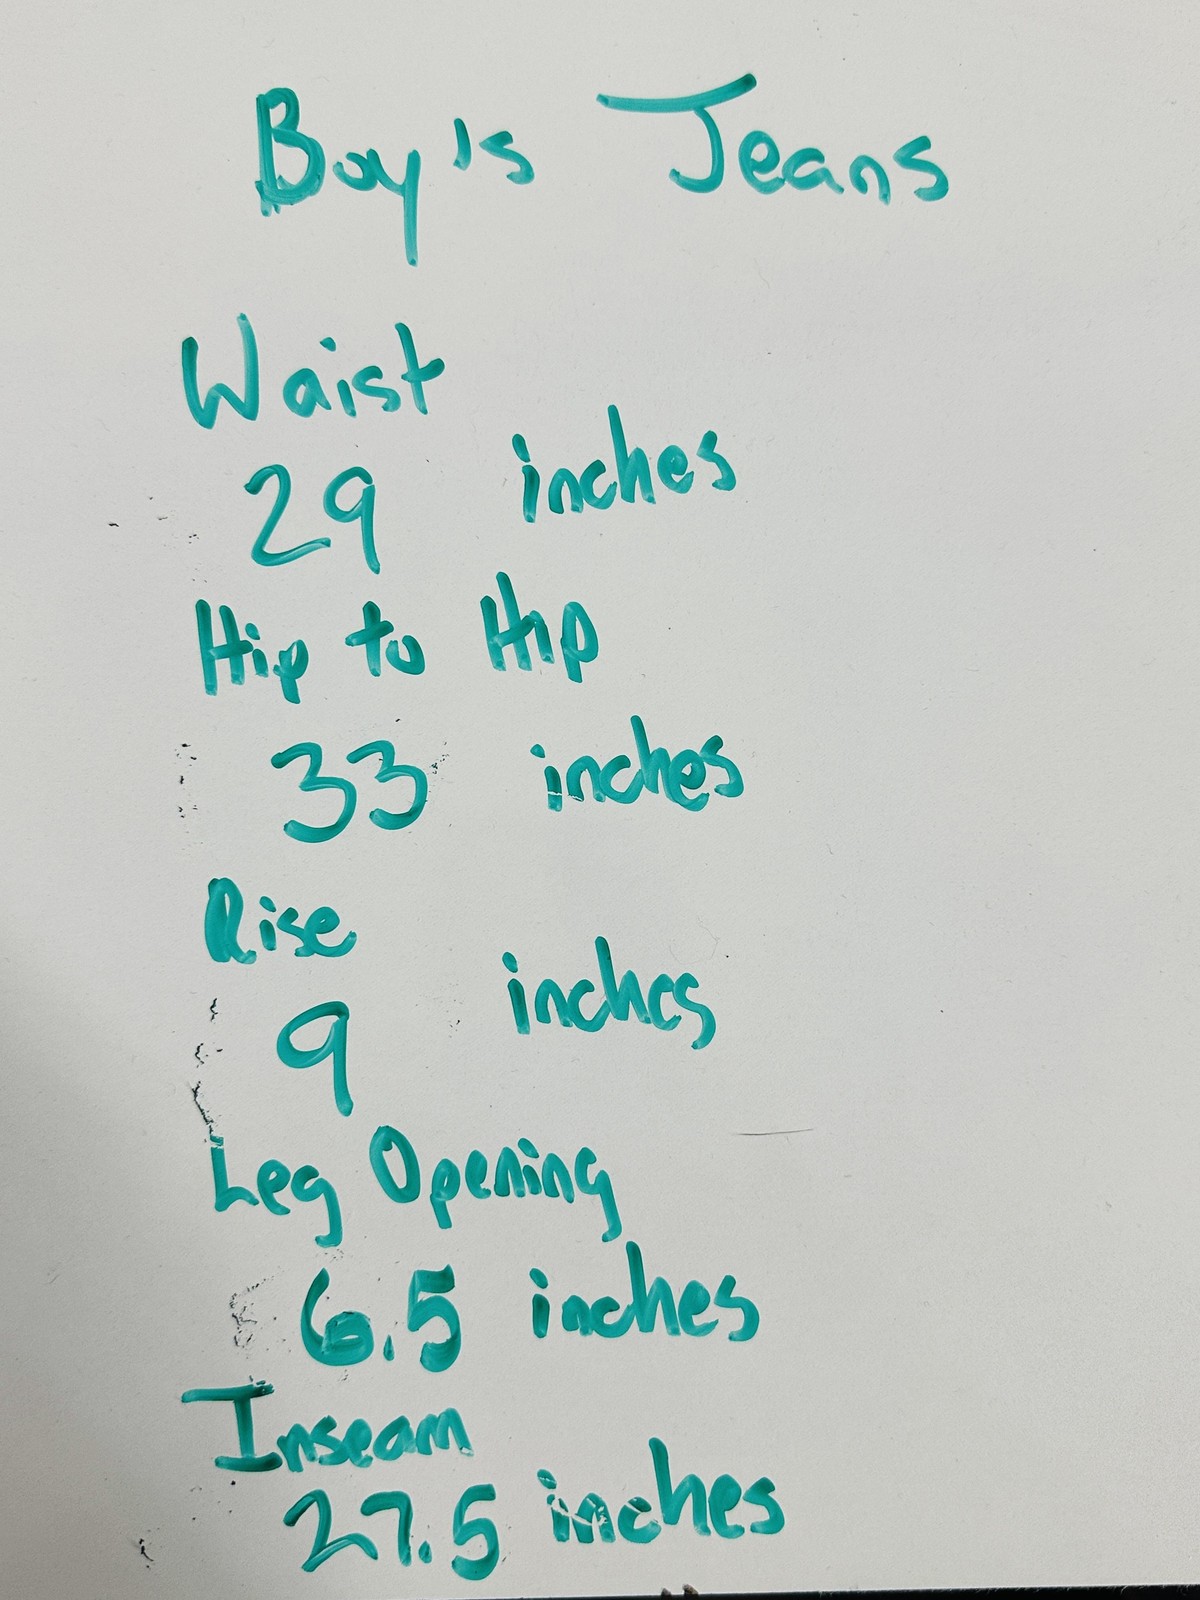 Boy's Jeans
Waist
29 inches
Hip to Hip
33 inches
Rise
9 inches
Leg Opening
6.5 inches
Inseam
27.5 inches